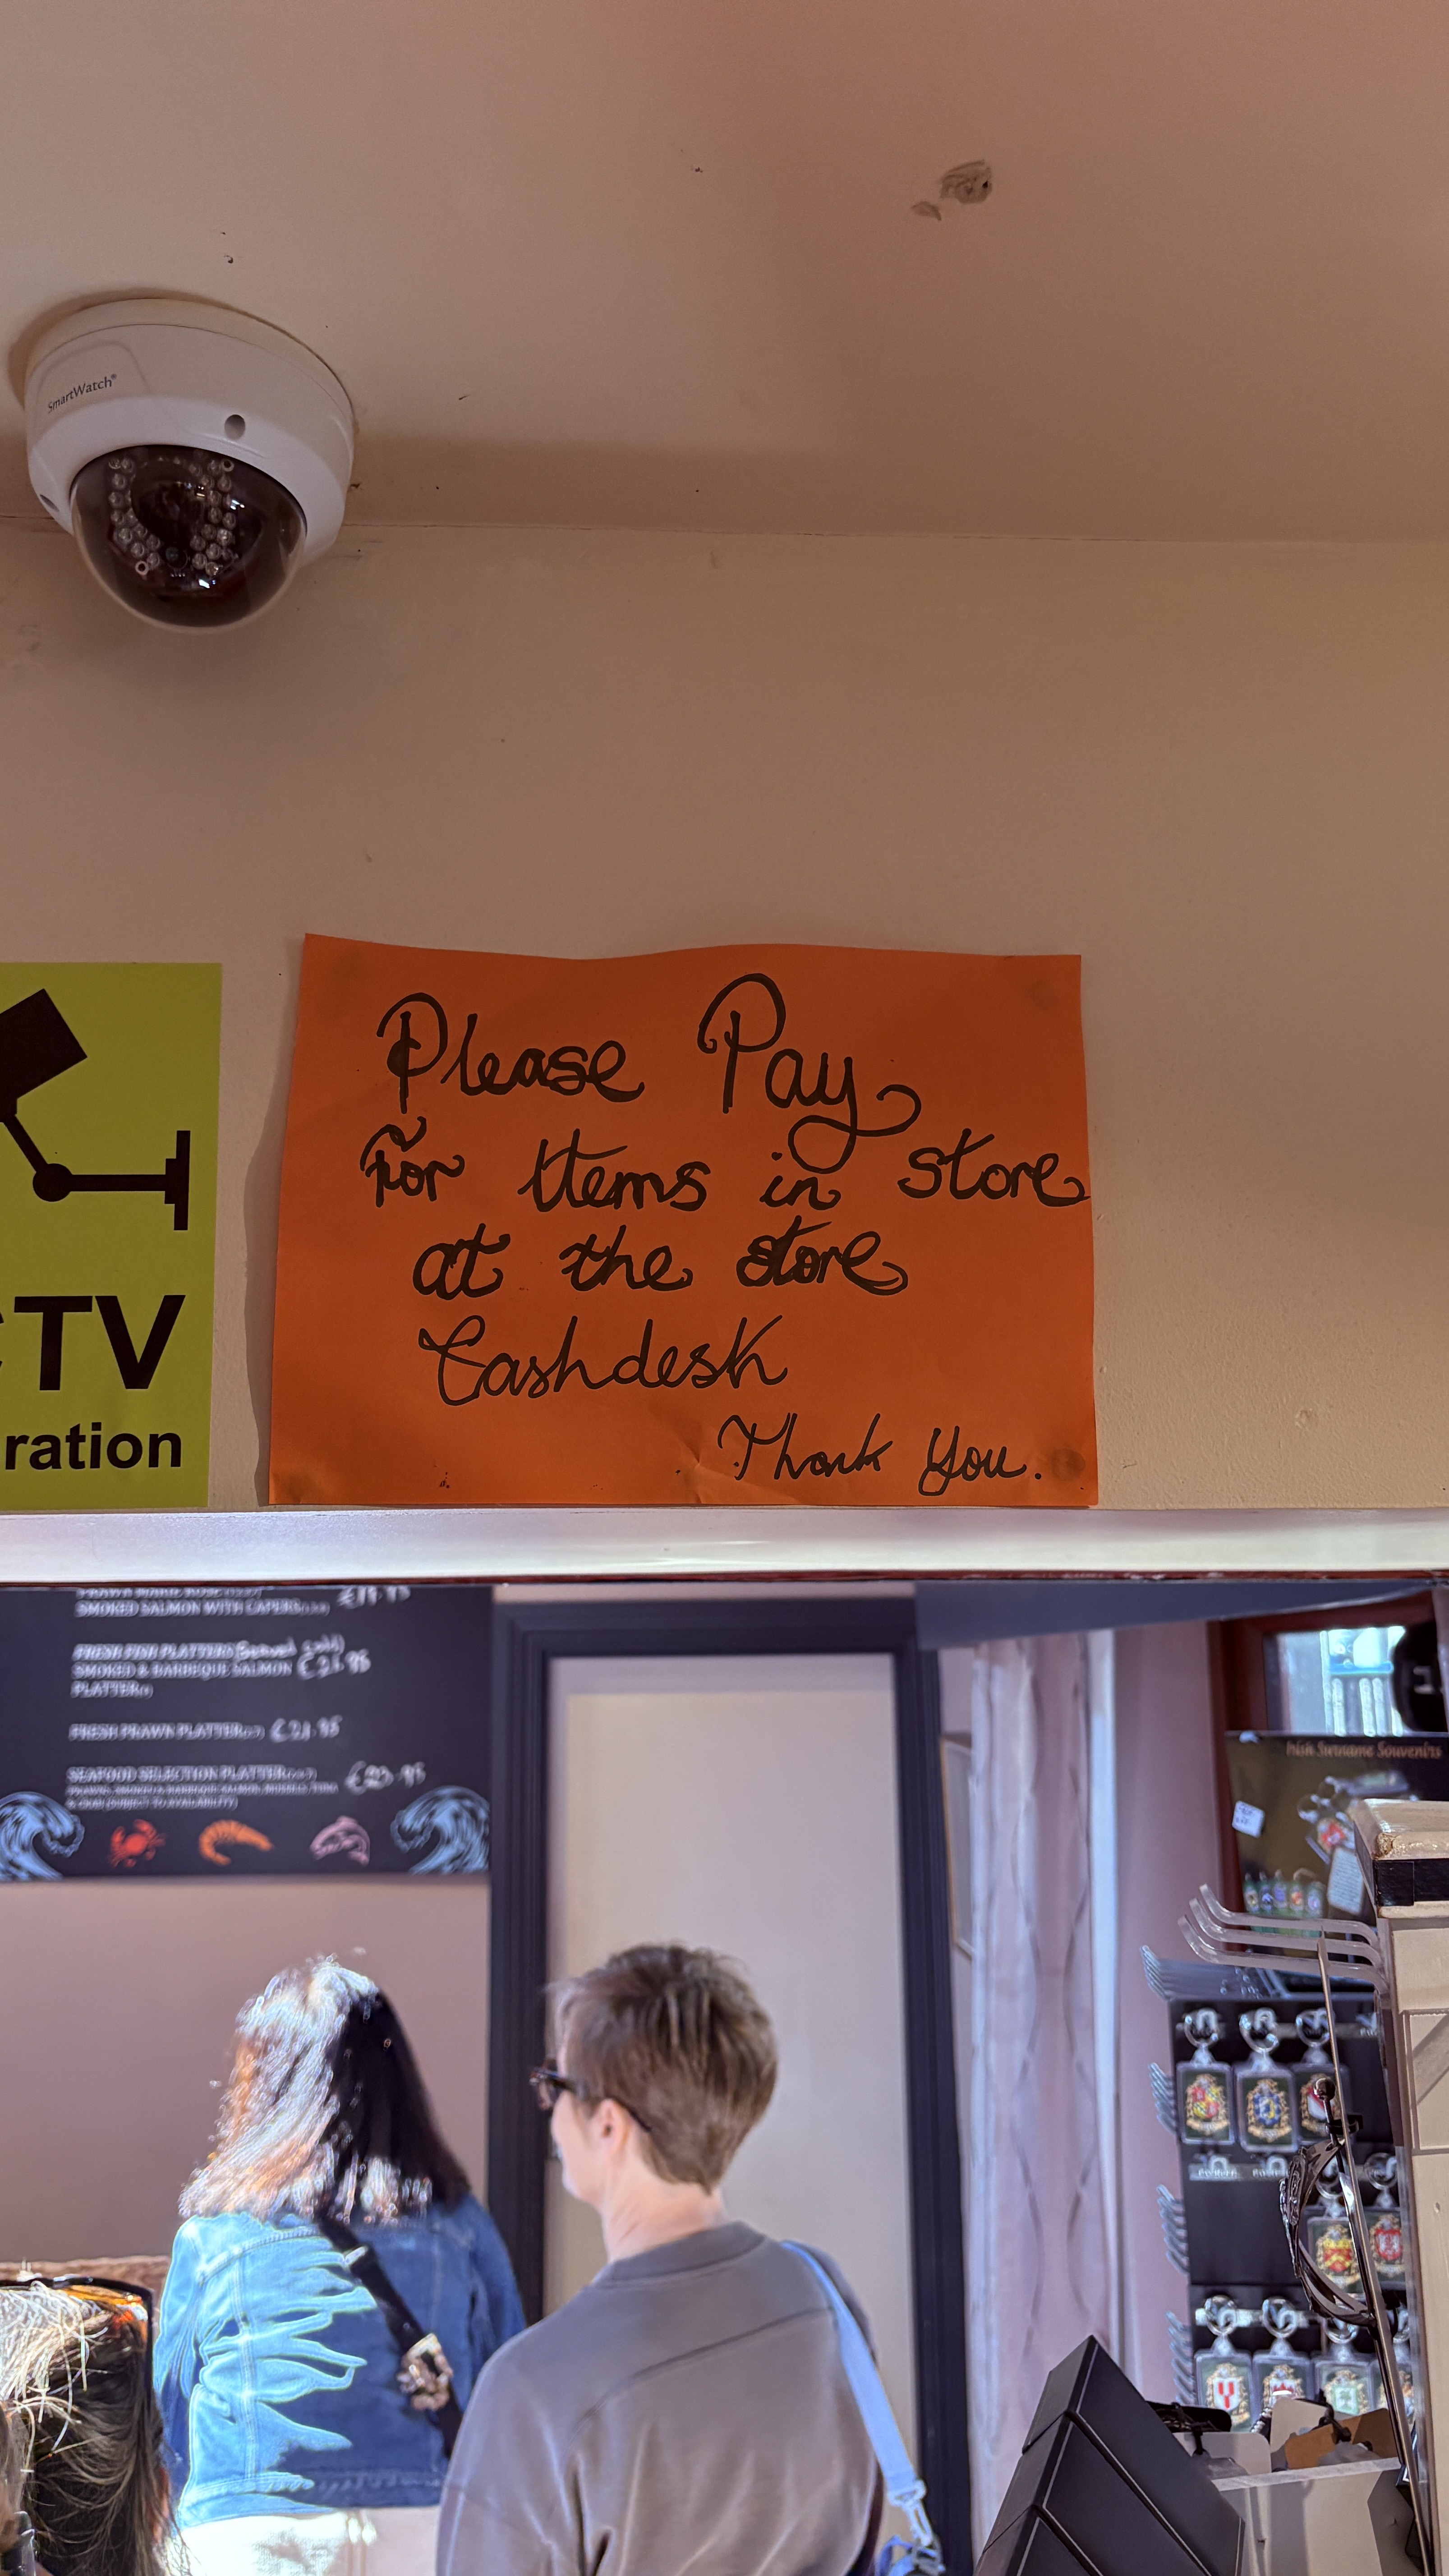 SmartWatch®
CTV
ration
Please Pay
For Items in store
at the store
Cashdesk
Thank You.
SMOKED SALMON WITH CAPERS
FRESH FISH PLATTERS (Served cold)
SMOKED & BARBEQUE SALMON
PLATTER
FRESH PRAWN PLATTER
SEAFOOD SELECTION PLATTER
& CRAB (SUBJECT TO AVAILABILITY)
Irish Surname Souvenirs